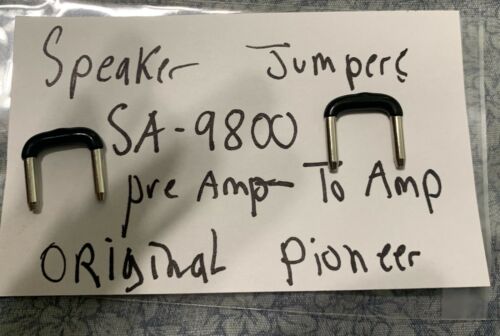 Speaker Jumpers
SA-9800
pre Amp- To Amp
ORiginal Pioneer